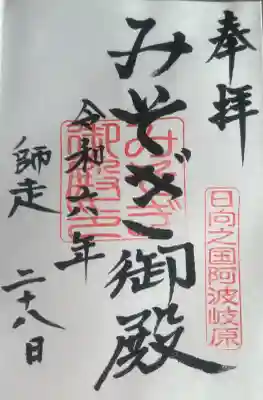 奉拝
日向之国阿波岐原
みそぎ御殿
みそぎ
御殿
令和六年
師走
二十八日